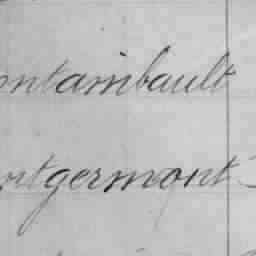 ontambault
ortgermont